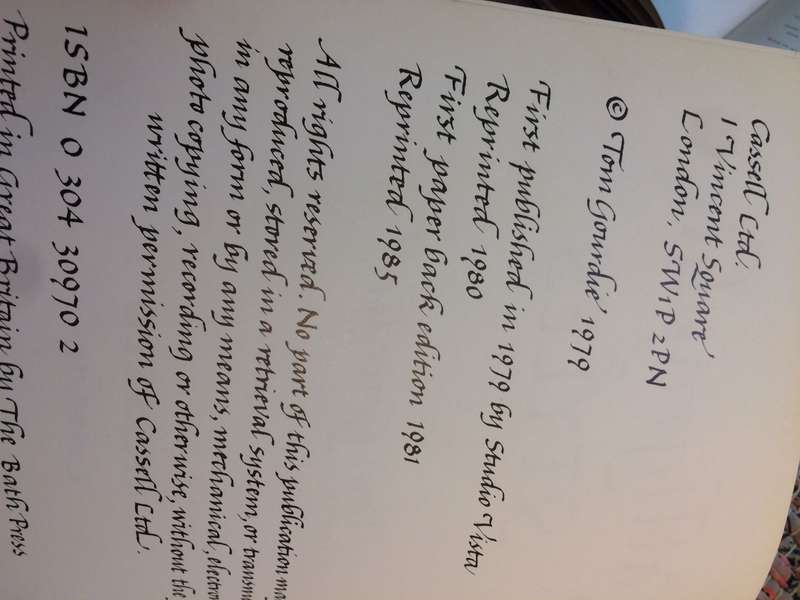 Cassell Ltd.
1 Vincent Square
London, SW1P 2PN
© Tom Gourdie 1979
First published in 1979 by Studio Vista
Reprinted 1980
First paper back edition 1981
Reprinted 1985
All rights reserved. No part of this publication
reproduced, stored in a retrieval system, or
in any form or by any means, mechanical,
photo copying, recording or otherwise, without the
written permission of Cassell Ltd.
ISBN 0 304 30970 2
Printed in Great Britain by The Bath Press